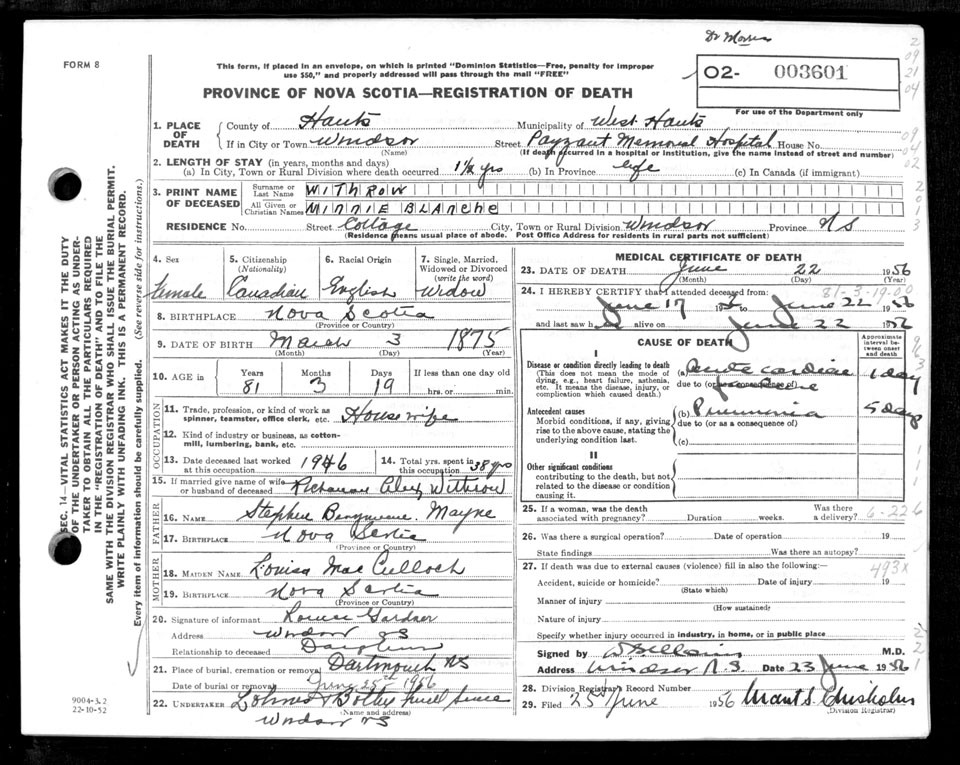 Dr Morris
FORM 8
This form, if placed in an envelope, on which is printed "Dominion Statistics—Free, penalty for improper
use $50," and properly addressed will pass through the mail "FREE"
O2- 003601
For use of the Department only
PROVINCE OF NOVA SCOTIA—REGISTRATION OF DEATH
1. PLACE OF DEATH
County of Hants Municipality of West Hants
If in City or Town Windsor Street Payzant Memorial Hospital House No.
(Name) (If death occurred in a hospital or institution, give the name instead of street and number)
2. LENGTH OF STAY (in years, months and days)
(a) In City, Town or Rural Division where death occurred 1½ yrs (b) In Province life (c) In Canada (if immigrant)
3. PRINT NAME OF DECEASED
Surname or Last Name WITHROW
All Given or Christian Names MINNIE BLANCHE
RESIDENCE No. Street Cottage City, Town or Rural Division Windsor Province NS
(Residence means usual place of abode. Post Office Address for residents in rural parts not sufficient)
4. Sex Female
5. Citizenship (Nationality) Canadian
6. Racial Origin English
7. Single, Married, Widowed or Divorced (write the word) Widow
8. BIRTHPLACE Nova Scotia
(Province or Country)
9. DATE OF BIRTH March 3 1875
(Month) (Day) (Year)
10. AGE in Years Months Days If less than one day old
81 3 19 hrs. or min.
OCCUPATION
11. Trade, profession, or kind of work as spinner, teamster, office clerk, etc. House wife
12. Kind of industry or business, as cotton-mill, lumbering, bank, etc.
13. Date deceased last worked at this occupation 1946
14. Total yrs. spent in this occupation 38 yrs
15. If married give name of wife or husband of deceased Withrow
FATHER
16. NAME Stephen Mayne
17. BIRTHPLACE Nova Scotia
(Province or Country)
MOTHER
18. MAIDEN NAME Louisa MacCulloch
19. BIRTHPLACE Nova Scotia
(Province or Country)
20. Signature of informant Louise Gardner
Address Windsor NS
Relationship to deceased Daughter
21. Place of burial, cremation or removal Dartmouth NS
Date of burial or removal June 25th 1956
22. UNDERTAKER
(Name and address)
Windsor NS
MEDICAL CERTIFICATE OF DEATH
23. DATE OF DEATH June 22 1956
(Month) (Day)
24. I HEREBY CERTIFY that I attended deceased from: 81-3-19-00
June 17 to June 22 1956
and last saw h alive on June 22 1956
CAUSE OF DEATH
Approximate interval between onset and death
I
Disease or condition directly leading to death
(This does not mean the mode of dying, e.g., heart failure, asthenia, etc. It means the disease, injury, or complication which caused death.)
(a) Acute cardiac 1 day
due to (or as a consequence of)
Antecedent causes
Morbid conditions, if any, giving rise to the above cause, stating the underlying condition last.
(b) Pneumonia 5 days
due to (or as a consequence of)
(c)
II
Other significant conditions
contributing to the death, but not related to the disease or condition causing it.
25. If a woman, was the death associated with pregnancy? Duration weeks. Was there a delivery? 6-226
26. Was there a surgical operation? Date of operation 19
State findings Was there an autopsy?
27. If death was due to external causes (violence) fill in also the following:— 493X
Accident, suicide or homicide? Date of injury 19
(State which)
Manner of injury
(How sustained)
Nature of injury
Specify whether injury occurred in industry, in home, or in public place
Signed by M.D.
Address Windsor N.S. Date 23 June 1956
28. Division Registrar's Record Number
29. Filed 25 June 1956 Grant S. Chisholm
(Division Registrar)
SEC. 14—VITAL STATISTICS ACT MAKES IT THE DUTY
OF THE UNDERTAKER OR PERSON ACTING AS UNDER-
TAKER TO OBTAIN ALL THE PARTICULARS REQUIRED
IN THE "REGISTRATION OF DEATH" AND TO FILE THE
SAME WITH THE DIVISION REGISTRAR WHO SHALL ISSUE THE BURIAL PERMIT.
WRITE PLAINLY WITH UNFADING INK. THIS IS A PERMANENT RECORD.
Every item of information should be carefully supplied. (See reverse side for instructions.)
9004-3.2
22-10-52